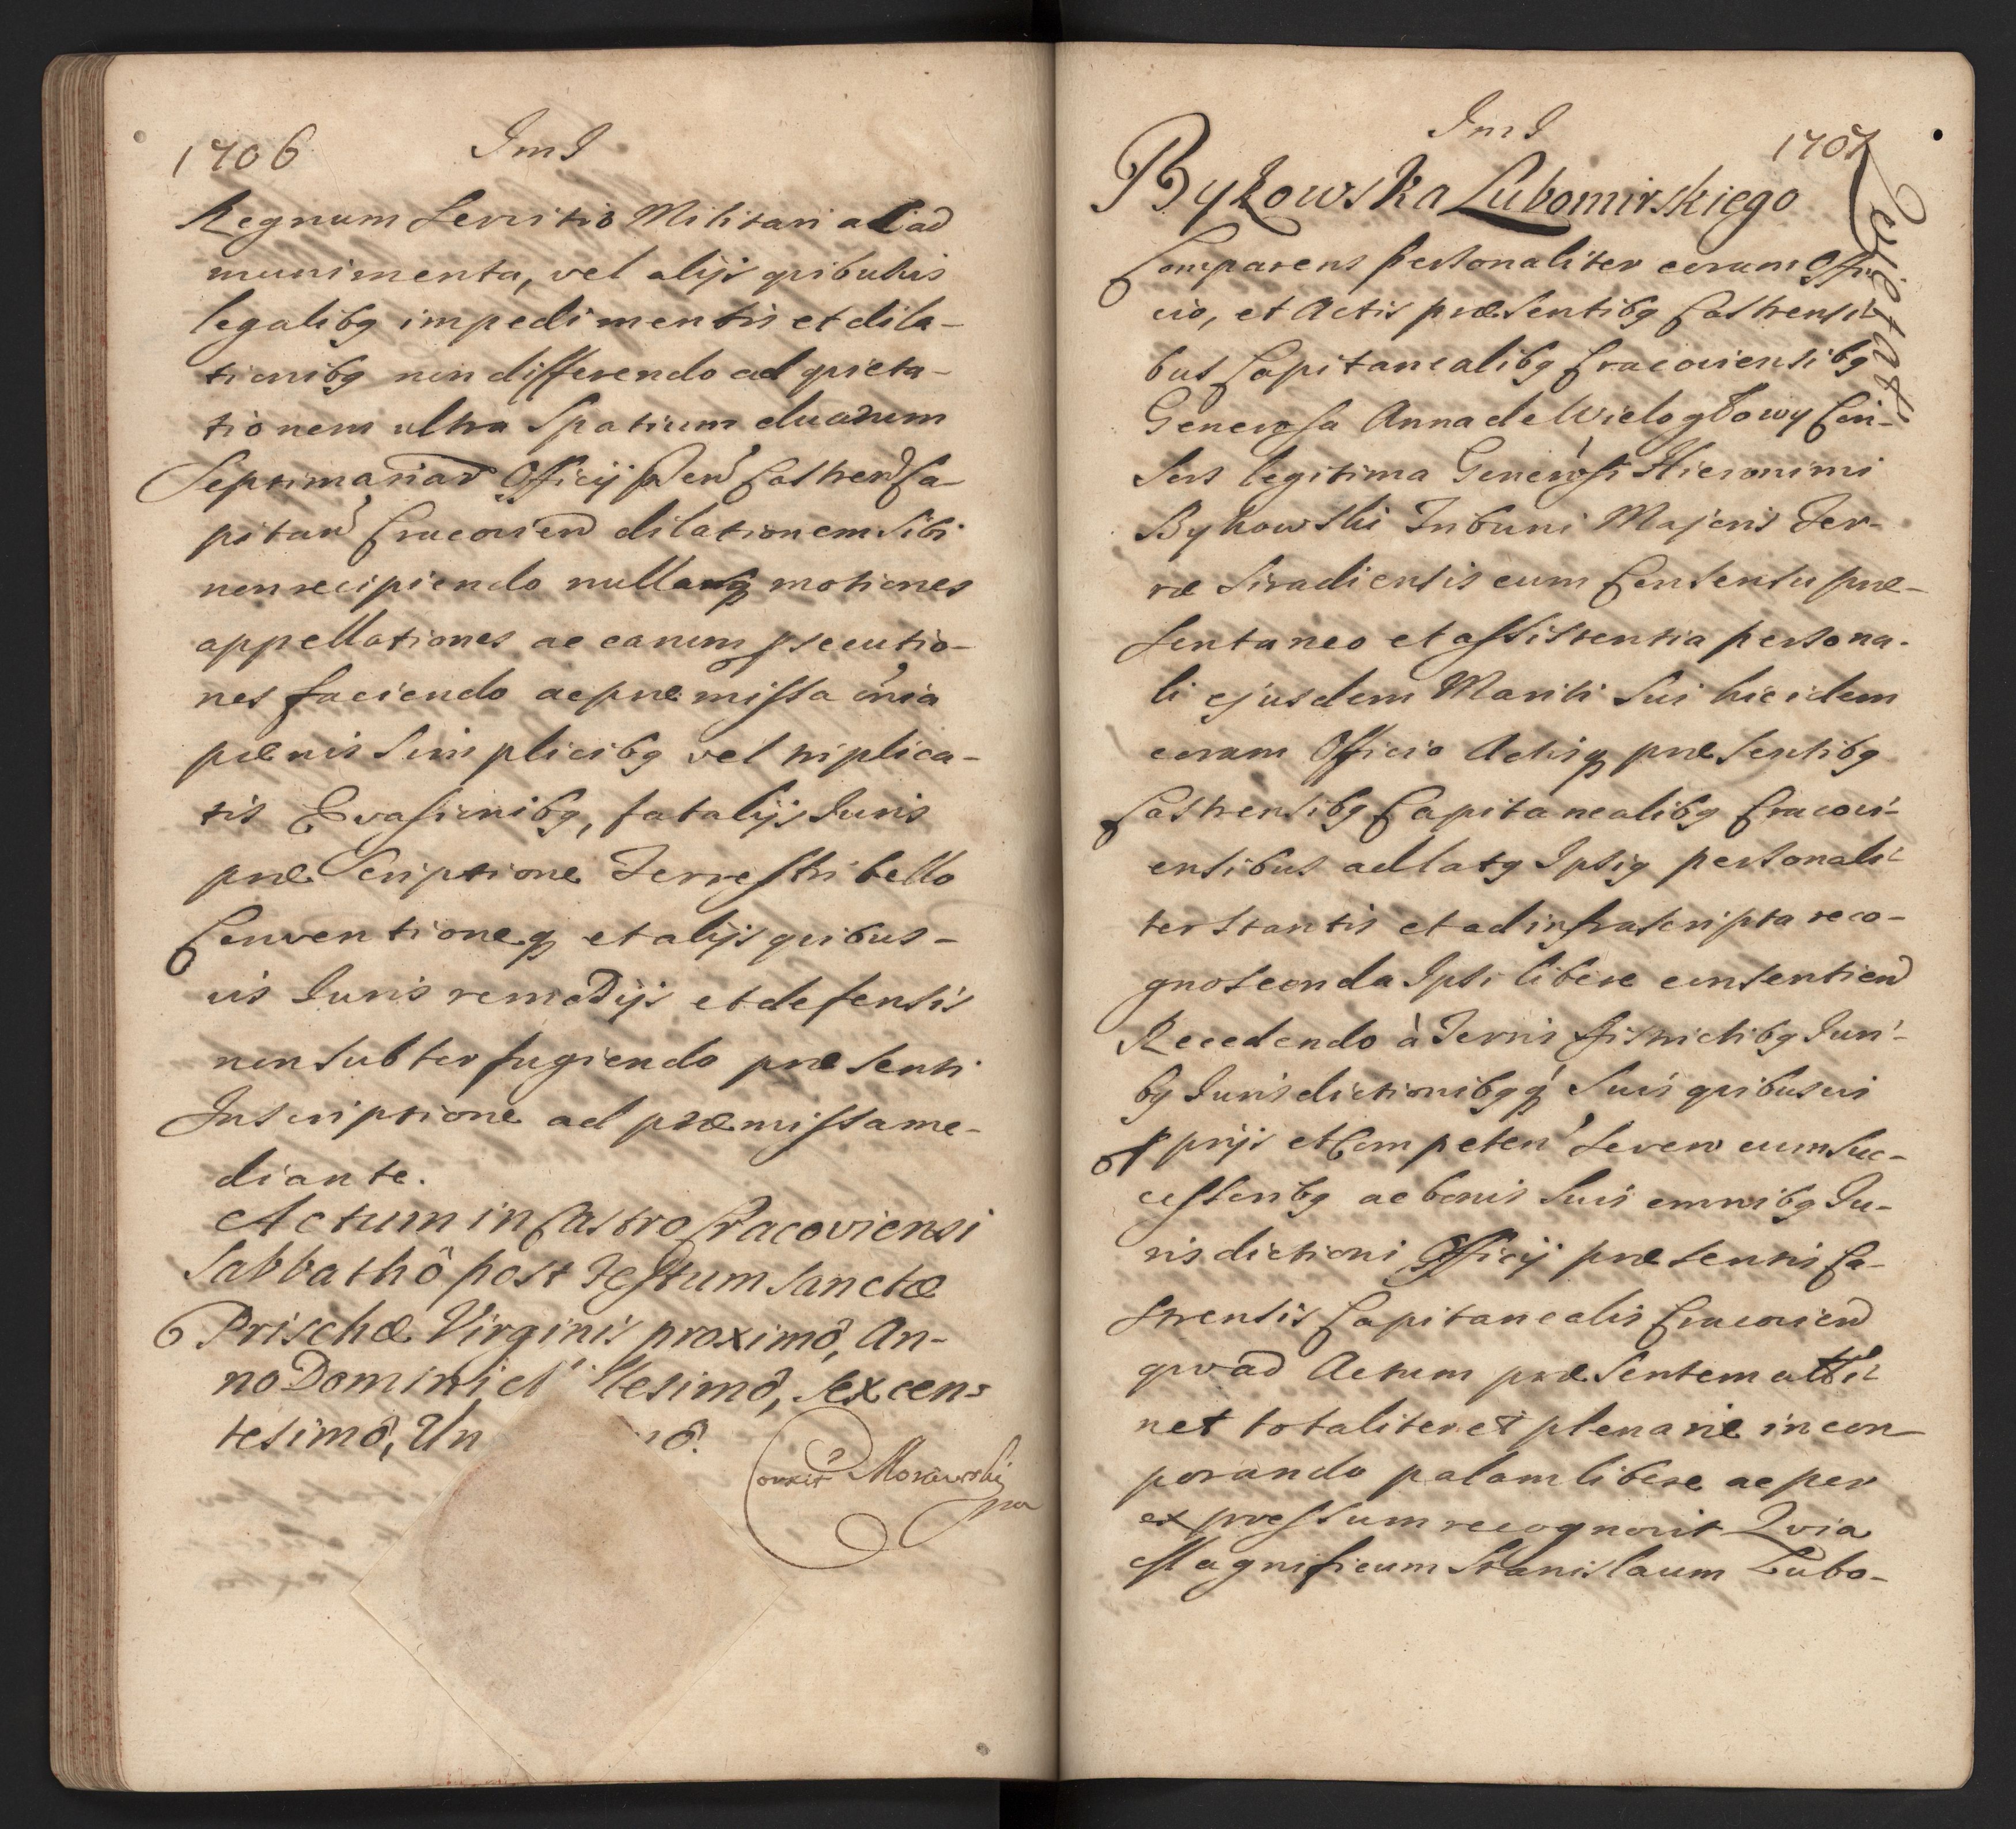 1706 JmJ
Regnum Servitio Militari aliad
munimenta, vel alijs quibusvis
legalibq impedimentis et dila-
tionibq non differendo ad quieta-
tionem ultra Spatium duarum
Septimanar Officij Castren Ca-
pitan Cracovien dilationem Sibi
non recipiendo nullasq motiones
appellationes ac earum psecutio-
nes faciendo ac præmissa oia
pænis Simplicibq vel triplica-
tis Evasionibq, fatalijs Juris
præscriptione Terrestri bello
Conventioneq et alijs quibus-
vis Juris remedijs et defensis
non subterfugiendo præsenti
Inscriptione ad præmissa me-
diante.
Actum in Castro Cracoviensi
Sabbathô post Festum Sanctæ
Prischæ Virginis proximô, An-
no Domini lesimô, Sexcen-
tesimô, Un mô.
Conxit Morawski
mpa
JmJ 1707
Bykowska Lubomirskiego
Quietat
Comparens personaliter coram Offi-
cio, et Actis præsentibq Castrensi-
bus Capitanealibq Cracoviensibq
Generosa Anna de Wielogłowy Con-
sors legitima Generosi Hieronimi
Bykowski Tribuni Majoris Ter-
ræ Siradiensis cum Consensu præ-
sentaneo et assistentia persona-
li ejusdem Mariti Sui hic idem
coram Officio Actisq præsentibq
Castrensibq Capitanealibq Cracovi-
ensibus ad latq Ipsiq personali-
ter Stantis et ad infrascripta reco-
gnoscenda Ipsi libere consentien
Recedendo à Terris Districtibq Juri-
bq Jurisdictionibqq Suis quibusvis
pprijs et Competen Seven cum Suc-
cessoribq ac bonis Suis omnibq Ju-
risdictioni Officij præsentis Ca-
strensis Capitanealis Cracovien
quoad Actum præsentem atti-
net totaliter et plenarie incor-
porando palam libere ac per
expressum recognovit Quia
Magnificum Stanislaum Lubo-